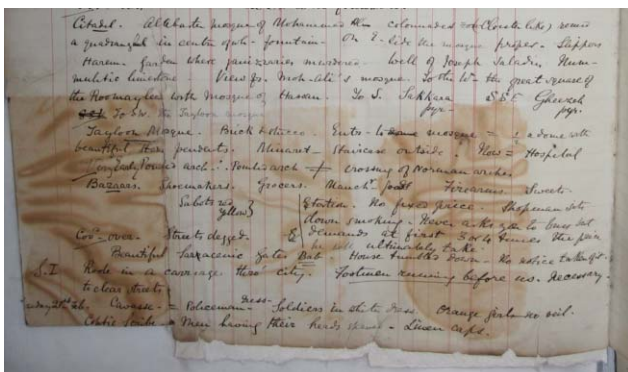 Citadel. Alabaster mosque of Mohammed Ali colonnades (Cloister like) round
a quadrangle in centre of wh. fountain. On E. side the mosque proper. Slippers
Harem. Garden where janizzaries murdered. Well of Joseph Saladin Num-
mulitic limestone View fr. Moh. Ali's mosque. To the W. the great square of
the Roomayleh with Mosque of Hassan. To S. Sakkara S.S.E Gheezeh
pyr. pyr.
To SW. the Tayloon mosque
Tayloon Mosque. Brick & stucco. Ents. to mosque = a dome with
beautiful pendents. Minaret - Staircase outside. Now = Hospital
Early Pointed arch. Pointed arch crossing of Norman arches
Bazaars. Shoemakers. Grocers. Manch. goods Firearms Sweets
Sabots red
yellow
Extortion. No fixed price. Shopmen sits
down smoking. Never asks you to buy but
Cov. over. Streets dogged. & demands at first 3 or 4 times the price
he will ultimately take.
Beautiful Sarracenic gates Bab. House tumbles down. No notice taken of it.
S.I Rode in a carriage thro' city. Footmen running before us. Necessary
to clear streets
Cavasse = Policeman Dress. Soldiers in white dress. Orange girls no veil.
Coptic Men having their heads shaved. Linen caps.